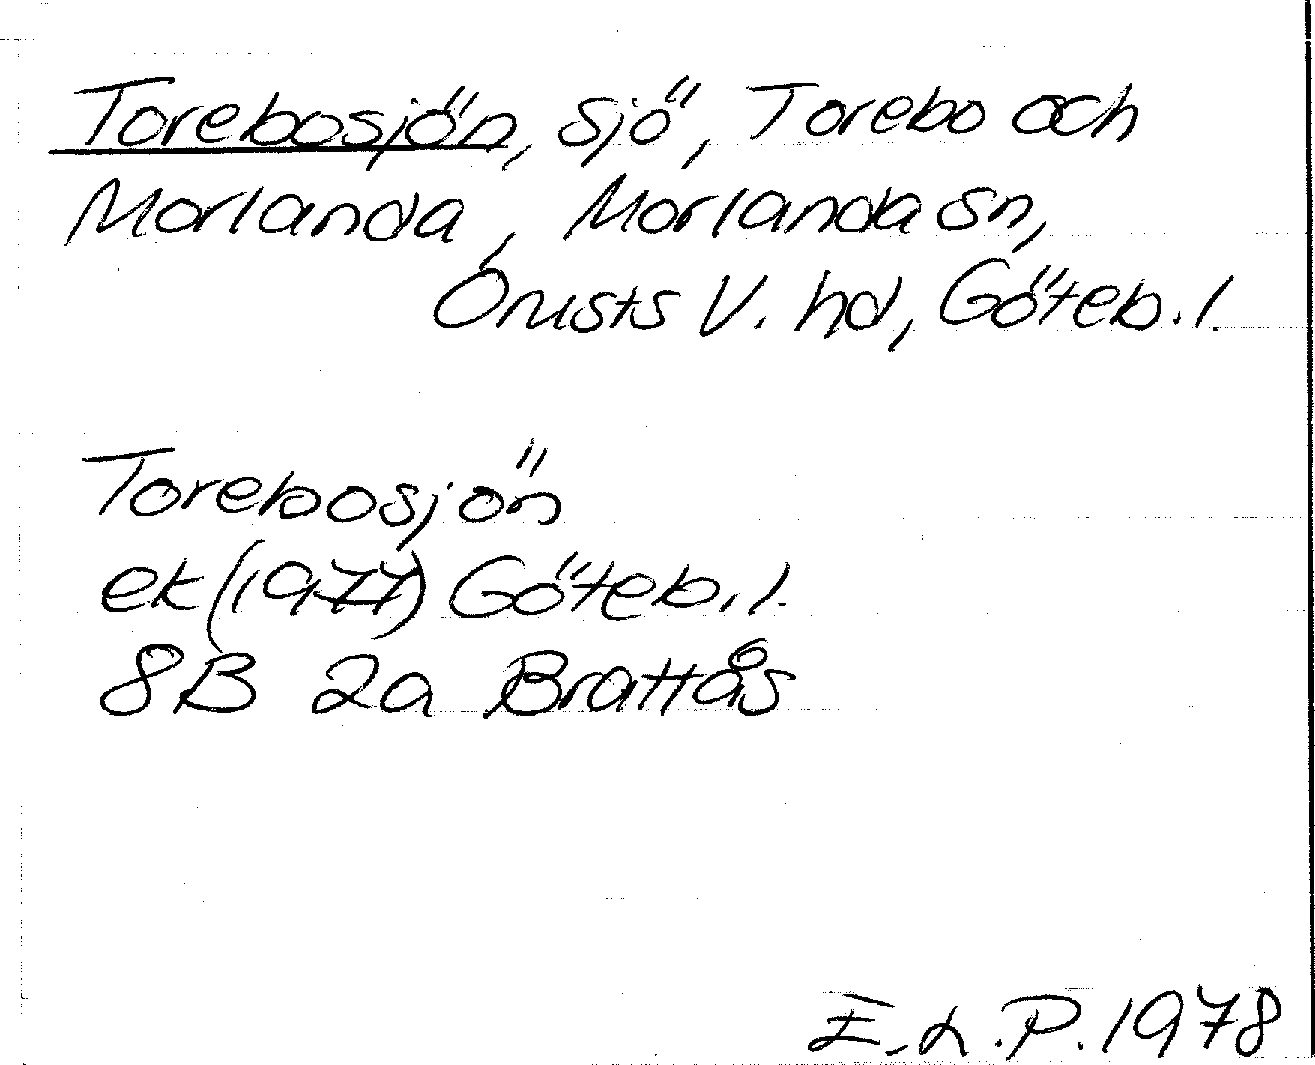 Torebosjön, sjö, Torebo och
Morlanda, Morlanda sn,
Orusts V. hd, Göteb. l.
Torebosjön
ek (1977) Göteb. l.
8B 2a Brattås
E.L.P. 1978